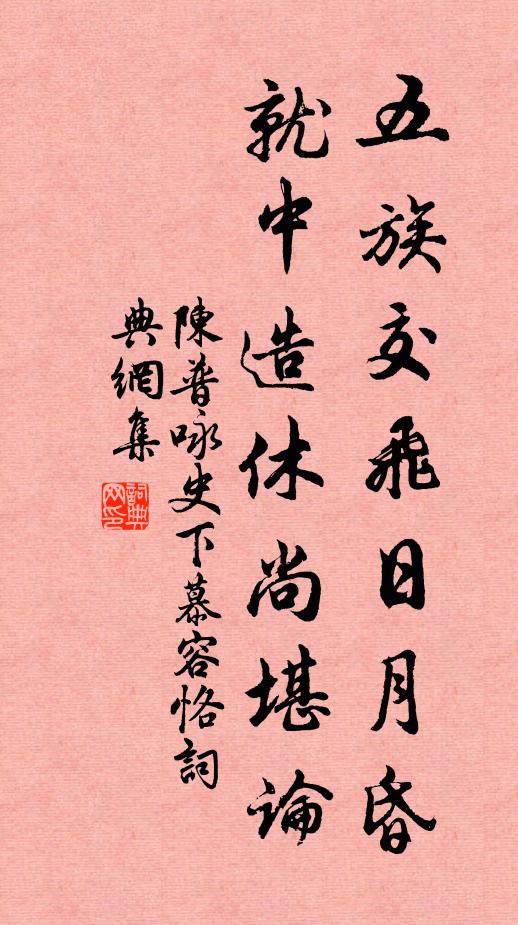 五族交飛日月昏
就中造休尚堪論
陳普咏史下慕容恪詞
典網集
詞典
网印